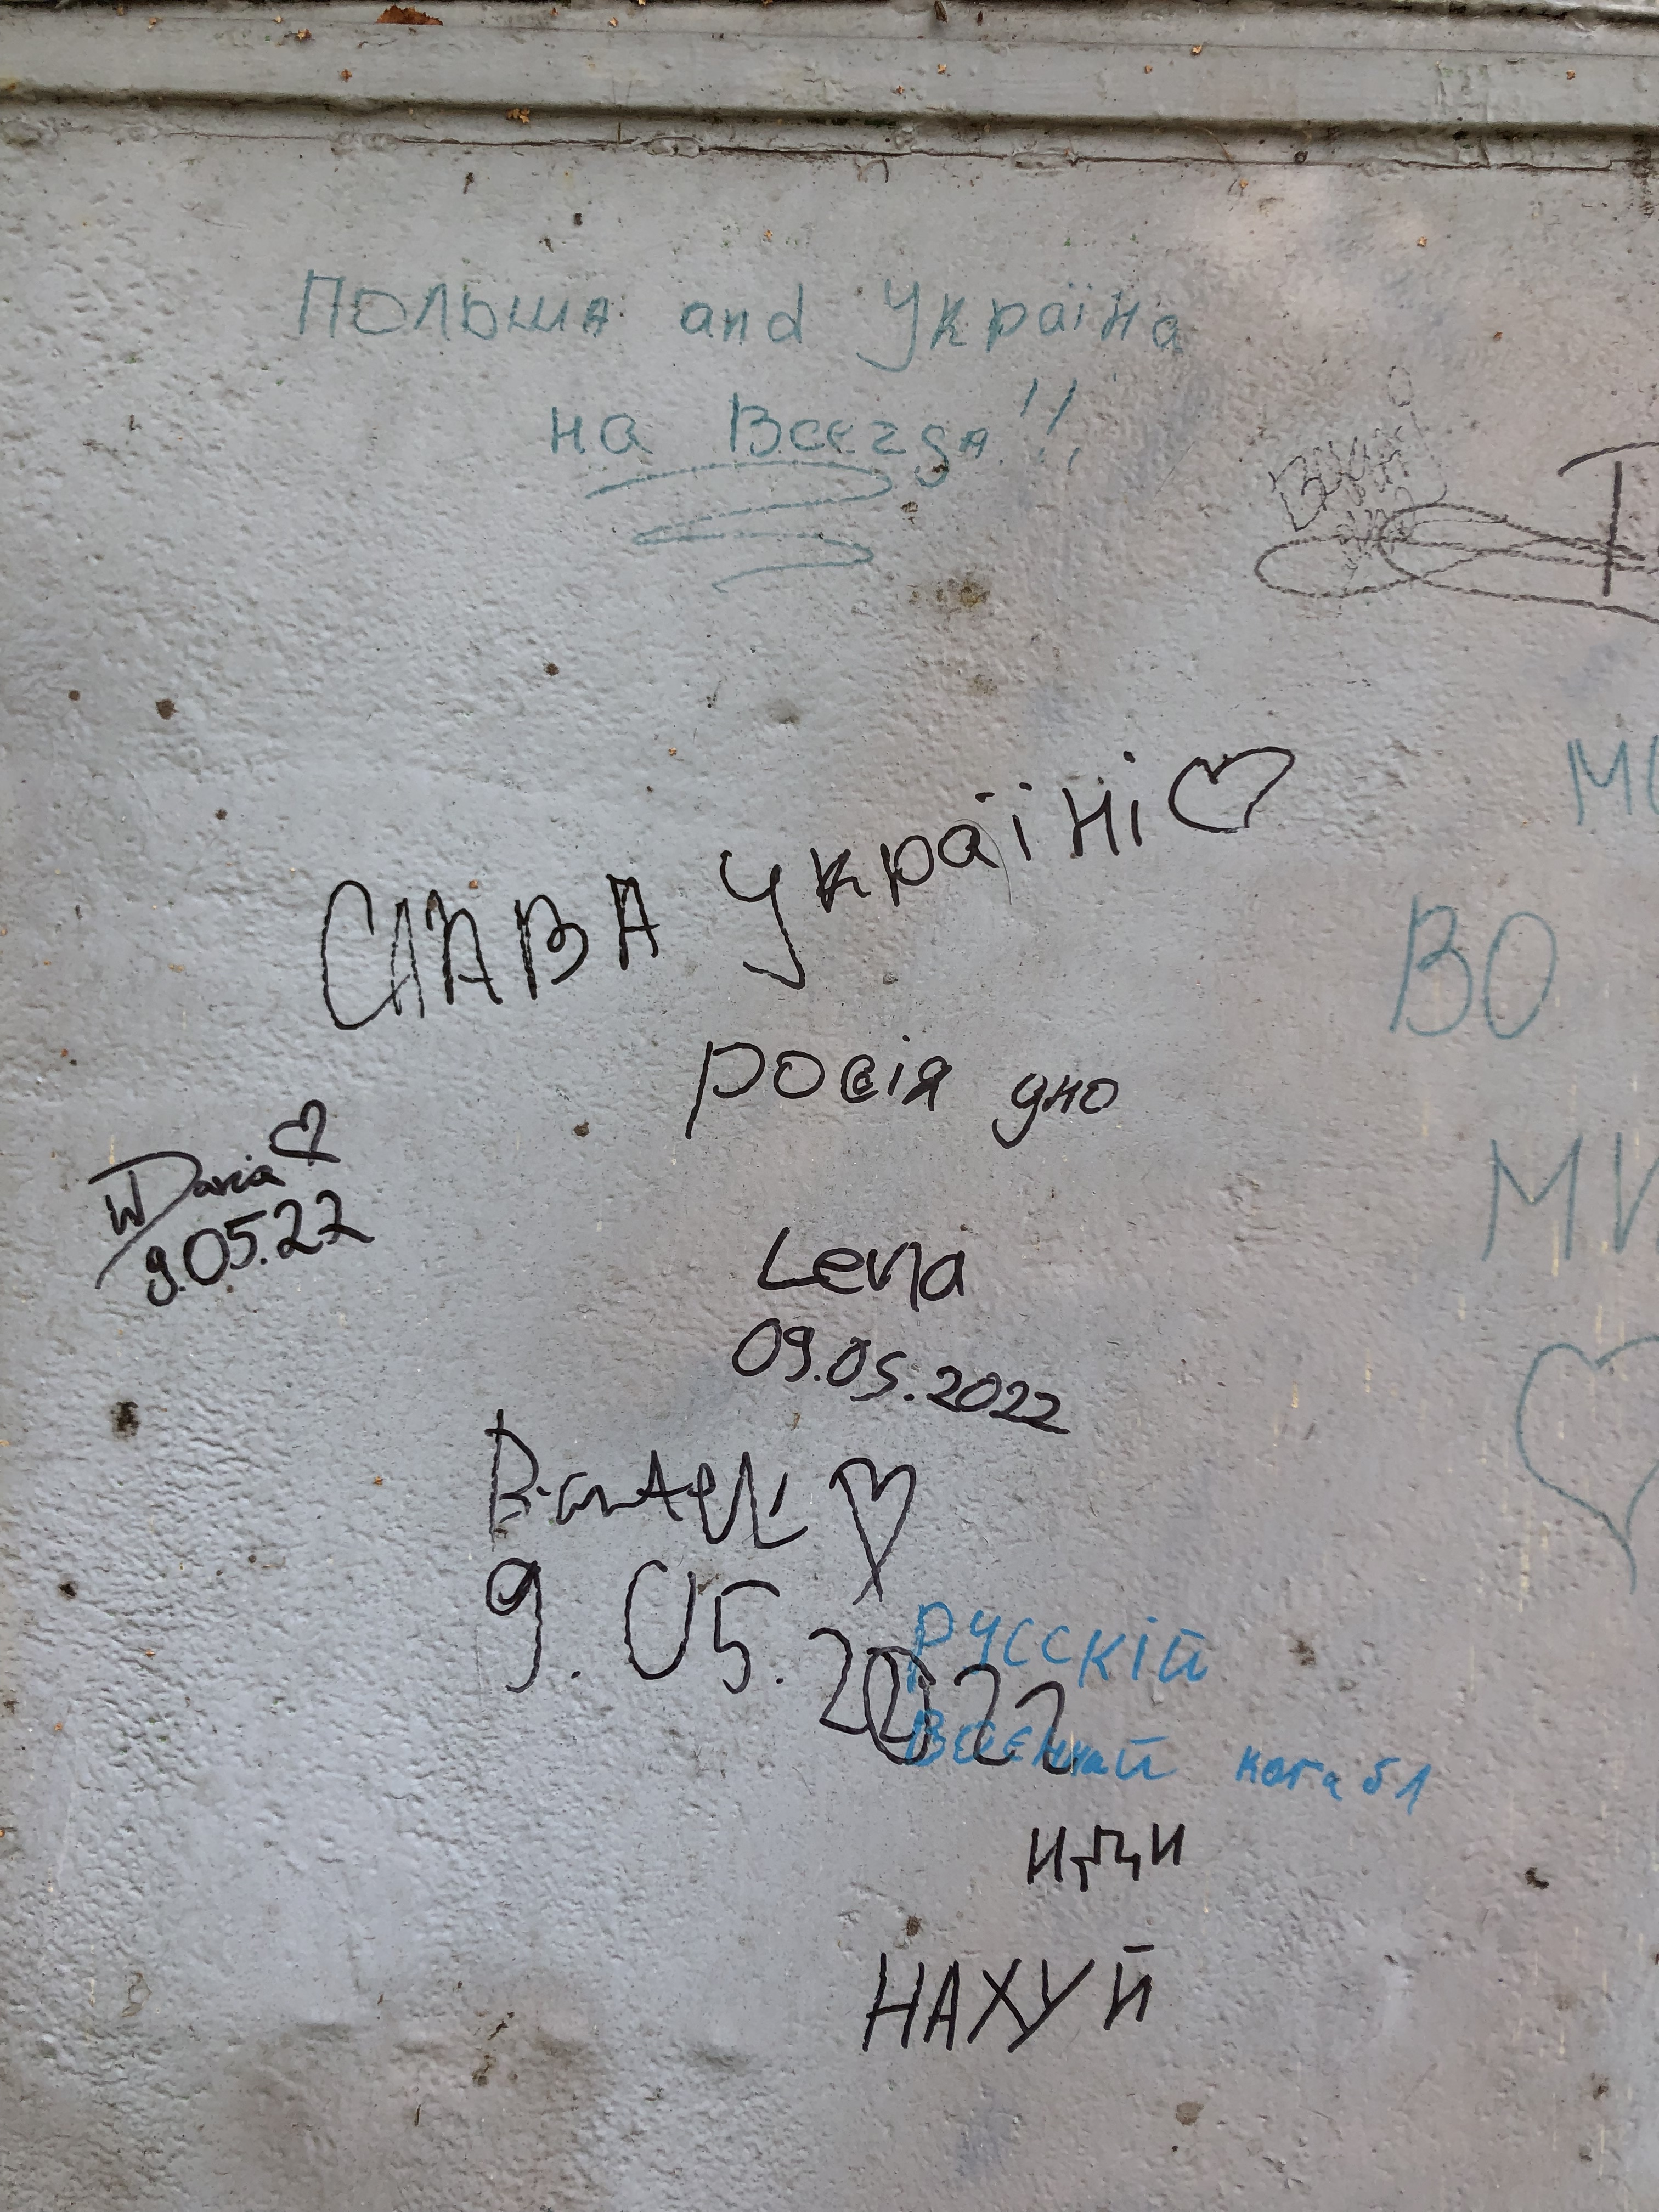 Польша and Україна
на Всегда!!
СЛАВА Україні
росія дно
Daria
9.05.22
Lena
09.05.2022
9.05.2022
ВО
русскій
военный корабл
иди
НАХУЙ